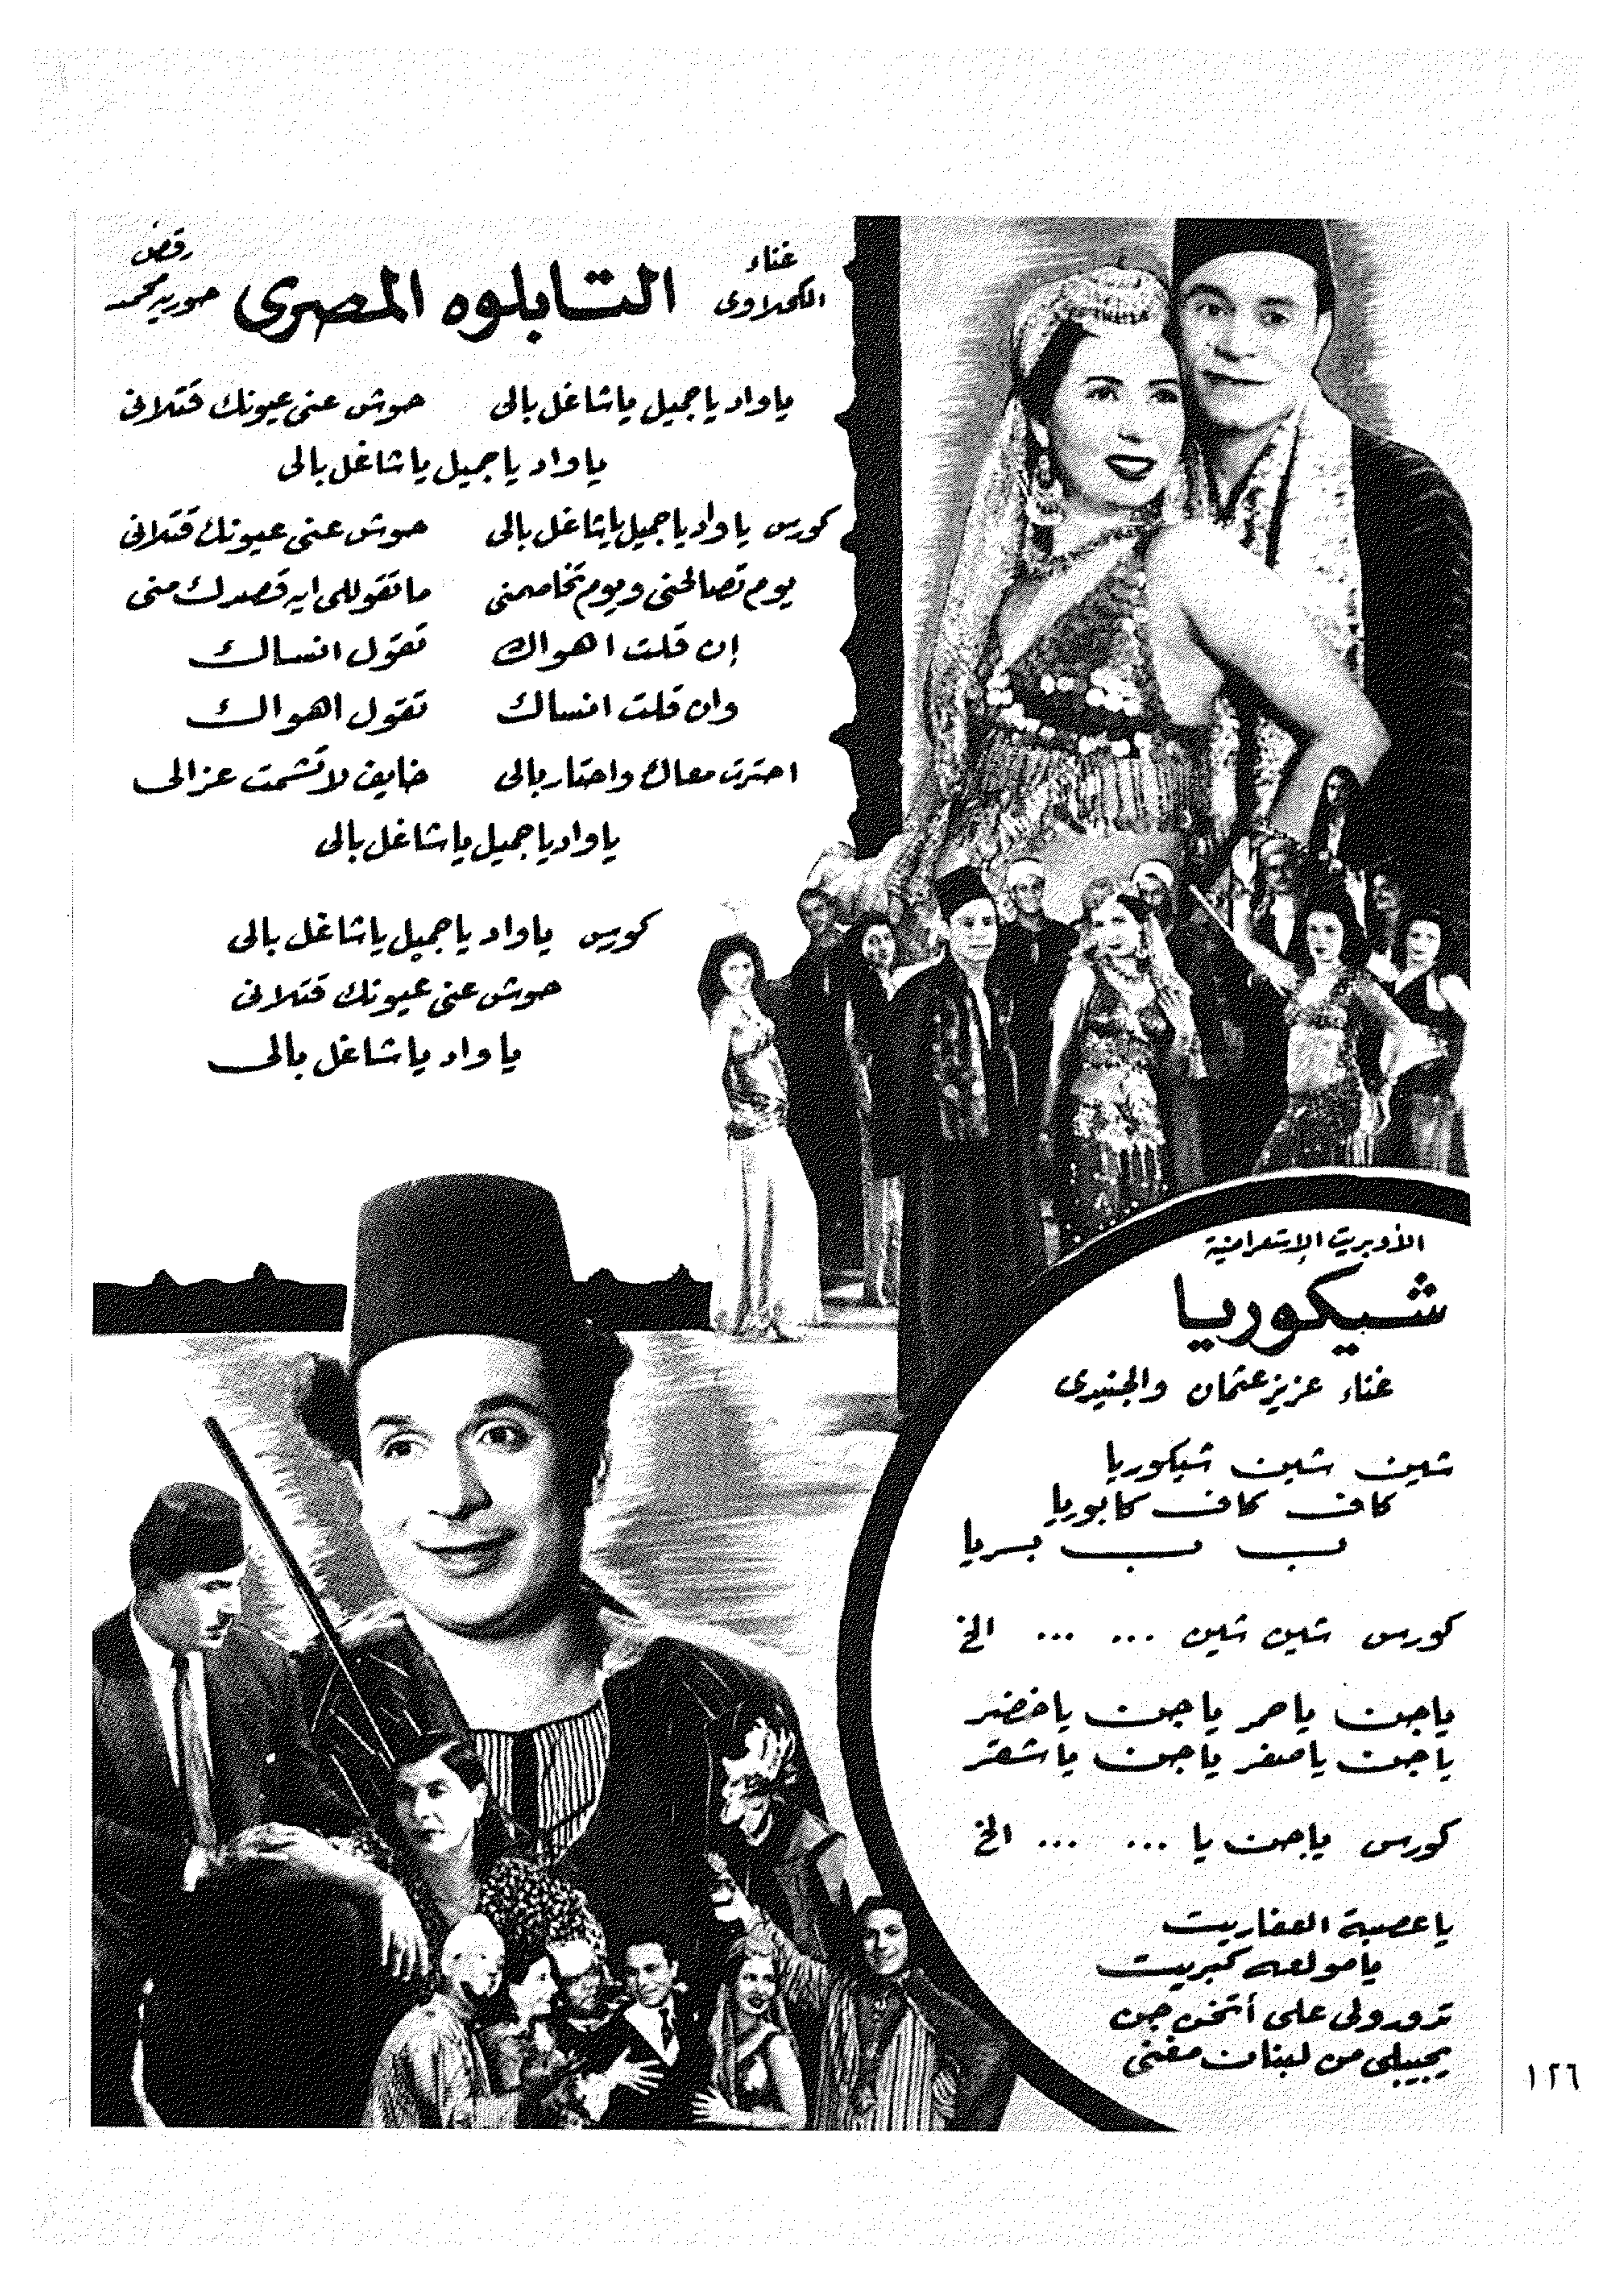 غناء
الكحلاوى
التابلوه المصرى
رقص
حورية محمد
ياواد ياجميل ياشاغل بالى حوش عنى عيونك قتلانى
ياواد ياجميل ياشاغل بالى
كورس ياواد ياجميل ياشاغل بالى حوش عنى عيونك قتلانى
يوم تصالحنى ويوم تخاصمنى ماتقوللى ايه قصدك منى
إن قلت اهواك تقول انساك
وان قلت انساك تقول اهواك
احترت معاك واحتار بالى خايف لاتشمت عزالى
ياواد ياجميل ياشاغل بالى
كورس ياواد ياجميل ياشاغل بالى
حوش عنى عيونك قتلانى
ياواد ياشاغل بالى
الأوبريت الإستعراضية
شيكوريا
غناء عزيز عثمان والجنيدى
شين شين شيكوريا
كاف كاف كابوريا
ب ب بسريا
كورس شين شين ... ... الخ
ياجن ياحمر ياجن ياخضر
ياجن ياصفر ياجن ياشقر
كورس ياجن يا ... ... الخ
ياعصبة العفاريت
يامولعه كبريت
تدورولى على أتخن جن
يجيبلى من لبنان مغنى
١٢٦